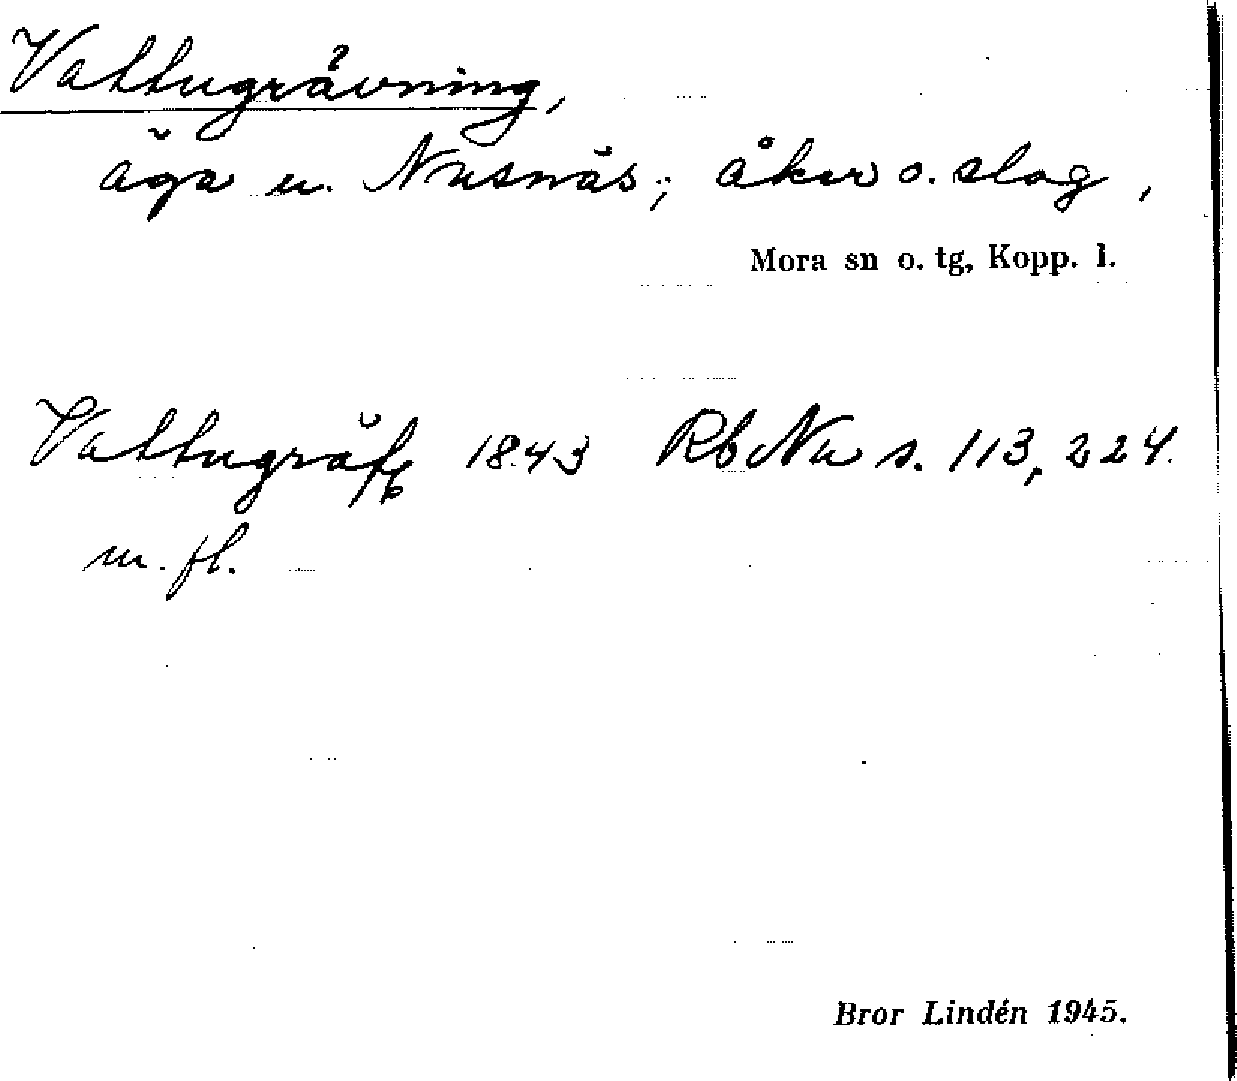 Vattugrävning,
äga u. Nusnäs; åker o. slog,
Mora sn o. tg, Kopp. l.
Vattugräfg 1843 Rb Nu s. 113, 224.
m. fl.
Bror Lindén 1945.